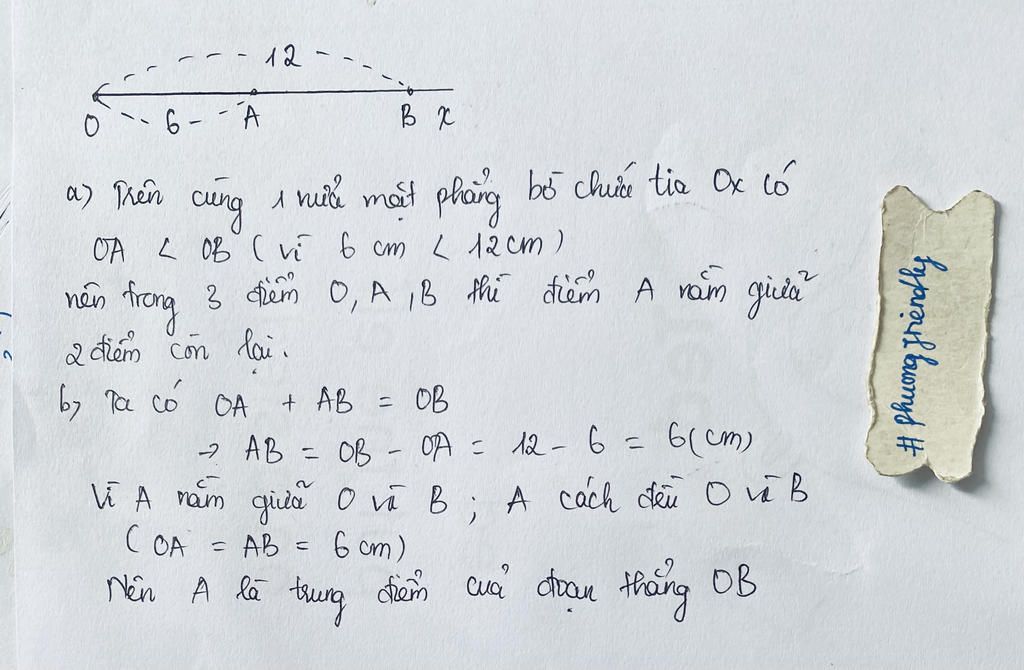 12
O 6 A B x
a) Trên cùng 1 nửa mặt phẳng bờ chứa tia Ox có
OA < OB (vì 6 cm < 12cm)
nên trong 3 điểm O, A, B thì điểm A nằm giữa
2 điểm còn lại.
b) Ta có OA + AB = OB
→ AB = OB - OA = 12 - 6 = 6(cm)
Vì A nằm giữa O và B ; A cách đều O và B
(OA = AB = 6 cm)
Nên A là trung điểm của đoạn thẳng OB
#phuongfriendly